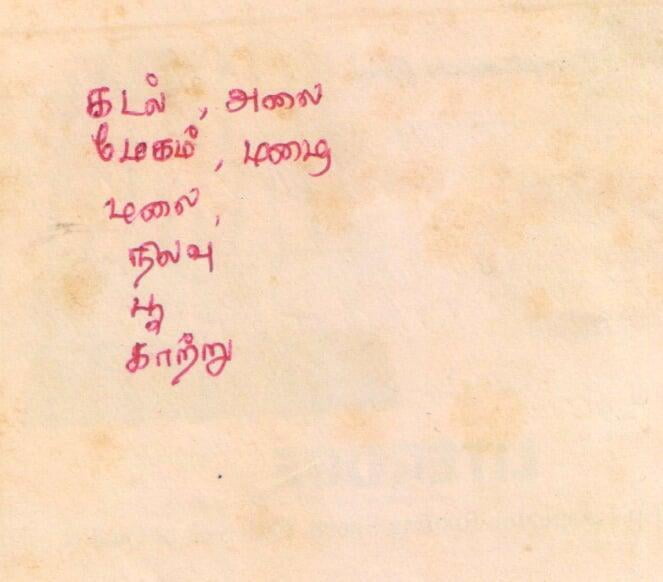 கடல் , அலை
மேகம் , மழை
மலை ,
நிலவு
பூ
காற்று